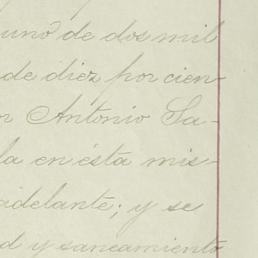 uno de dos mil
de diez por cien-
or Antonio Sa-
la en ésta mis-
adelante; y se
d y saneamiento